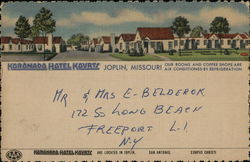 KORONADO HOTEL KOURTS JOPLIN, MISSOURI OUR ROOMS AND COFFEE SHOPS ARE
AIR CONDITIONED BY REFRIGERATION
MR & MRS E- BELDEROK
172 SO LONG BEACH
FREEPORT L.I.
N.Y
KORONADO HOTEL KOURTS ARE LOCATED IN JOPLIN, SAN ANTONIO, CORPUS CHRISTI